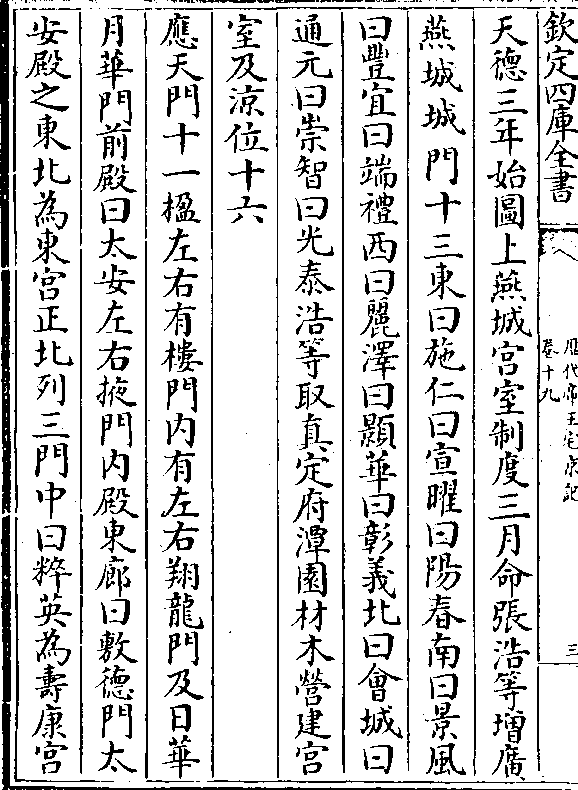 欽定四庫全書
歷代帝王宅京記
卷十九
三
天德三年始圖上燕城宮室制度三月命張浩等增廣
燕城城門十三東曰施仁曰宣曜曰陽春南曰景風
曰豐宜曰端禮西曰麗澤曰顥華曰彰義北曰會城曰
通元曰崇智曰光泰浩等取真定府潭園材木營建宮
室及涼位十六
應天門十一楹左右有樓門内有左右翔龍門及日華
月華門前殿曰太安左右掖門内殿東廊曰敷德門太
安殿之東北為東宮正北列三門中曰粹英為壽康宮